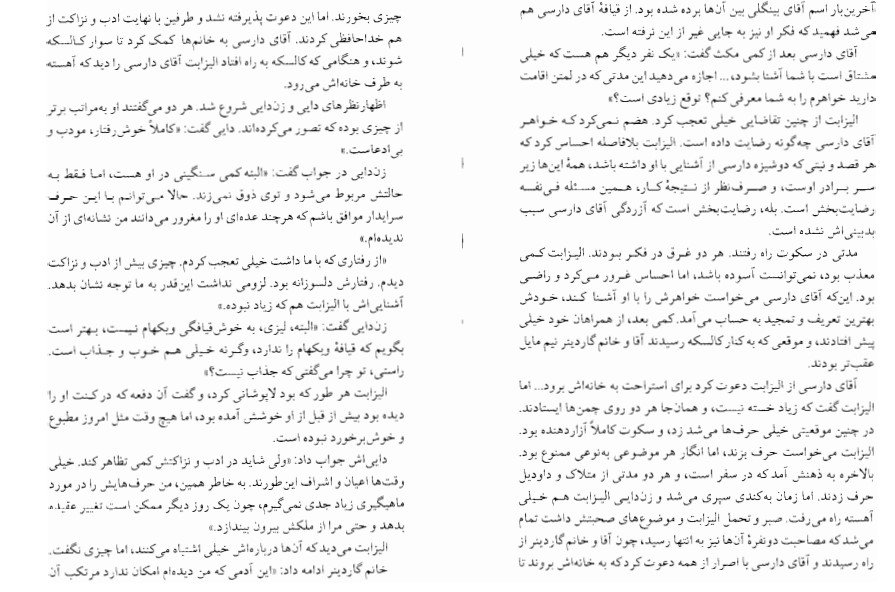 آخرین‌بار اسم آقای بینگلی بین آن‌ها برده شده بود. از قیافهٔ آقای دارسی هم
می‌شد فهمید که فکر او نیز به جایی غیر از این نرفته است.
آقای دارسی بعد از کمی مکث گفت: «یک نفر دیگر هم هست که خیلی
مشتاق است با شما آشنا بشود،... اجازه می‌دهید این مدتی که در لمتن اقامت
دارید خواهرم را به شما معرفی کنم؟ توقع زیادی است؟»
الیزابت از چنین تقاضایی خیلی تعجب کرد. هضم نمی‌کرد که خواهر
آقای دارسی چه‌گونه رضایت داده است. الیزابت بلافاصله احساس کرد که
هر قصد و نیتی که دوشیزه دارسی از آشنایی با او داشته باشد، همهٔ این‌ها زیر
سر برادر اوست، و صرف‌نظر از نتیجهٔ کار، همین مسئله فی‌نفسه
رضایت‌بخش است. بله، رضایت‌بخش است که آزردگی آقای دارسی سبب
بدبینی‌اش نشده است.
مدتی در سکوت راه رفتند. هر دو غرق در فکر بودند. الیزابت کمی
معذب بود، نمی‌توانست آسوده باشد، اما احساس غرور می‌کرد و راضی
بود. این‌که آقای دارسی می‌خواست خواهرش را با او آشنا کند، خودش
بهترین تعریف و تمجید به حساب می‌آمد. کمی بعد، از همراهان خود خیلی
پیش افتادند، و موقعی که به کنار کالسکه رسیدند آقا و خانم گاردینر نیم مایل
عقب‌تر بودند.
آقای دارسی از الیزابت دعوت کرد برای استراحت به خانه‌اش برود... اما
الیزابت گفت که زیاد خسته نیست، و همان‌جا هر دو روی چمن‌ها ایستادند.
در چنین موقعیتی خیلی حرف‌ها می‌شد زد، و سکوت کاملاً آزاردهنده بود.
الیزابت می‌خواست حرف بزند، اما انگار هر موضوعی به‌نوعی ممنوع بود.
بالاخره به ذهنش آمد که در سفر است، و هر دو مدتی از متلاک و داودیل
حرف زدند. اما زمان به‌کندی سپری می‌شد و زن‌دایی الیزابت هم خیلی
آهسته راه می‌رفت. صبر و تحمل الیزابت و موضوع‌های صحبتش داشت تمام
می‌شد که مصاحبت دونفرهٔ آن‌ها نیز به انتها رسید، چون آقا و خانم گاردینر از
راه رسیدند و آقای دارسی با اصرار از همه دعوت کرد که به خانه‌اش بروند تا
چیزی بخورند. اما این دعوت پذیرفته نشد و طرفین با نهایت ادب و نزاکت از
هم خداحافظی کردند. آقای دارسی به خانم‌ها کمک کرد تا سوار کالسکه
شوند، و هنگامی که کالسکه به راه افتاد الیزابت آقای دارسی را دید که آهسته
به طرف خانه‌اش می‌رود.
اظهارنظرهای دایی و زن‌دایی شروع شد. هر دو می‌گفتند او به‌مراتب برتر
از چیزی بوده که تصور می‌کرده‌اند. دایی گفت: «کاملاً خوش‌رفتار، مودب و
بی‌ادعاست.»
زن‌دایی در جواب گفت: «البته کمی سنگینی در او هست، اما فقط به
حالتش مربوط می‌شود و توی ذوق نمی‌زند. حالا می‌توانم با این حرف
سرایدار موافق باشم که هرچند عده‌ای او را مغرور می‌دانند من نشانه‌ای از آن
ندیده‌ام.»
«از رفتاری که با ما داشت خیلی تعجب کردم. چیزی بیش از ادب و نزاکت
دیدم. رفتارش دلسوزانه بود. لزومی نداشت این‌قدر به ما توجه نشان بدهد.
آشنایی‌اش با الیزابت هم که زیاد نبوده.»
زن‌دایی گفت: «البته، لیزی، به خوش‌قیافگی ویکهام نیست، بهتر است
بگویم که قیافهٔ ویکهام را ندارد، وگرنه خیلی هم خوب و جذاب است.
راستی، تو چرا می‌گفتی که جذاب نیست؟»
الیزابت هر طور که بود لاپوشانی کرد، و گفت آن دفعه که در کنت او را
دیده بود بیش از قبل از او خوشش آمده بود، اما هیچ وقت مثل امروز مطبوع
و خوش‌برخورد نبوده است.
دایی‌اش جواب داد: «ولی شاید در ادب و نزاکتش کمی تظاهر کند. خیلی
وقت‌ها اعیان و اشراف این‌طورند. به خاطر همین، من حرف‌هایش را در مورد
ماهیگیری زیاد جدی نمی‌گیرم، چون یک روز دیگر ممکن است تغییر عقیده
بدهد و حتی مرا از ملکش بیرون بیندازد.»
الیزابت می‌دید که آن‌ها درباره‌اش خیلی اشتباه می‌کنند، اما چیزی نگفت.
خانم گاردینر ادامه داد: «این آدمی که من دیده‌ام امکان ندارد مرتکب آن